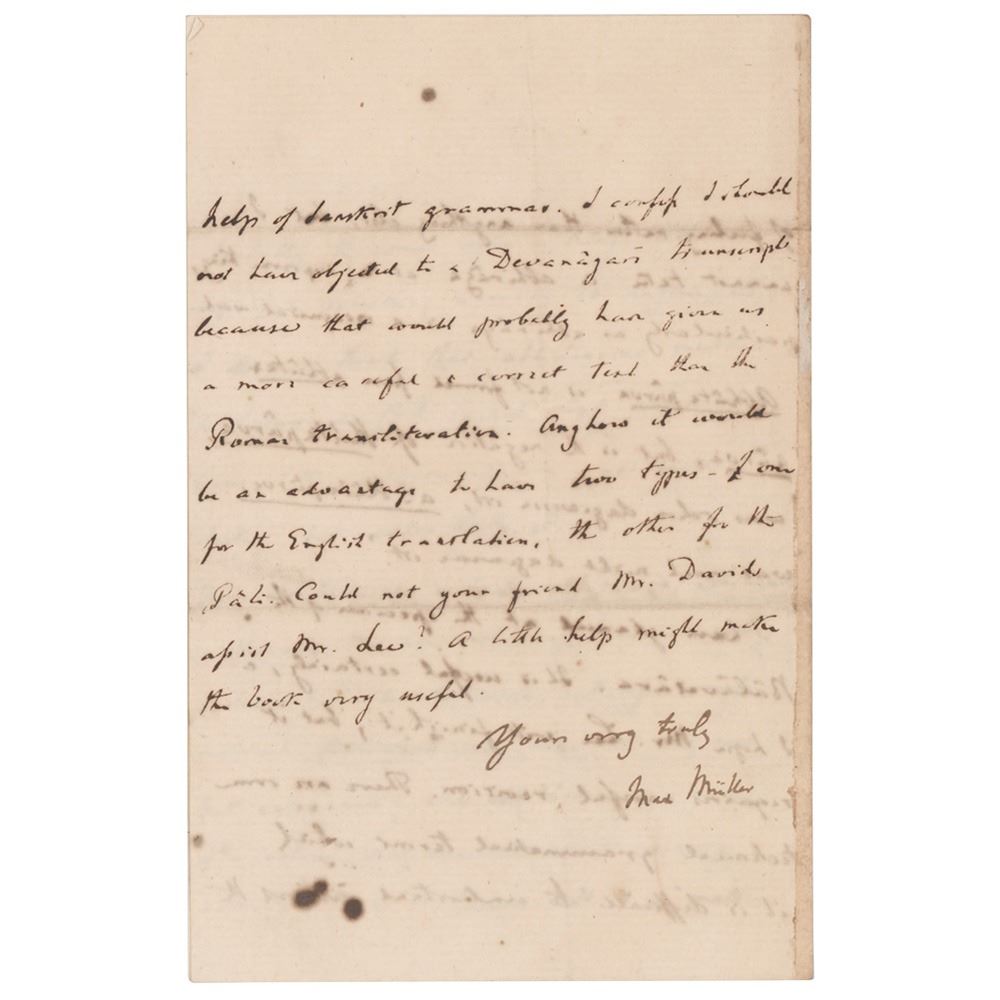 help of Sanskrit grammar. I confess I should
not have objected to a Devanâgari transcript
because that would probably have given us
a more careful & correct text than the
Roman transliteration. Anyhow it would
be an advantage to have two types - one
for the English translation, the other for the
Pâli. Could not your friend Mr. Davids
assist Mr. Lee? A little help might make
the book very useful.
Yours very truly
Max Müller